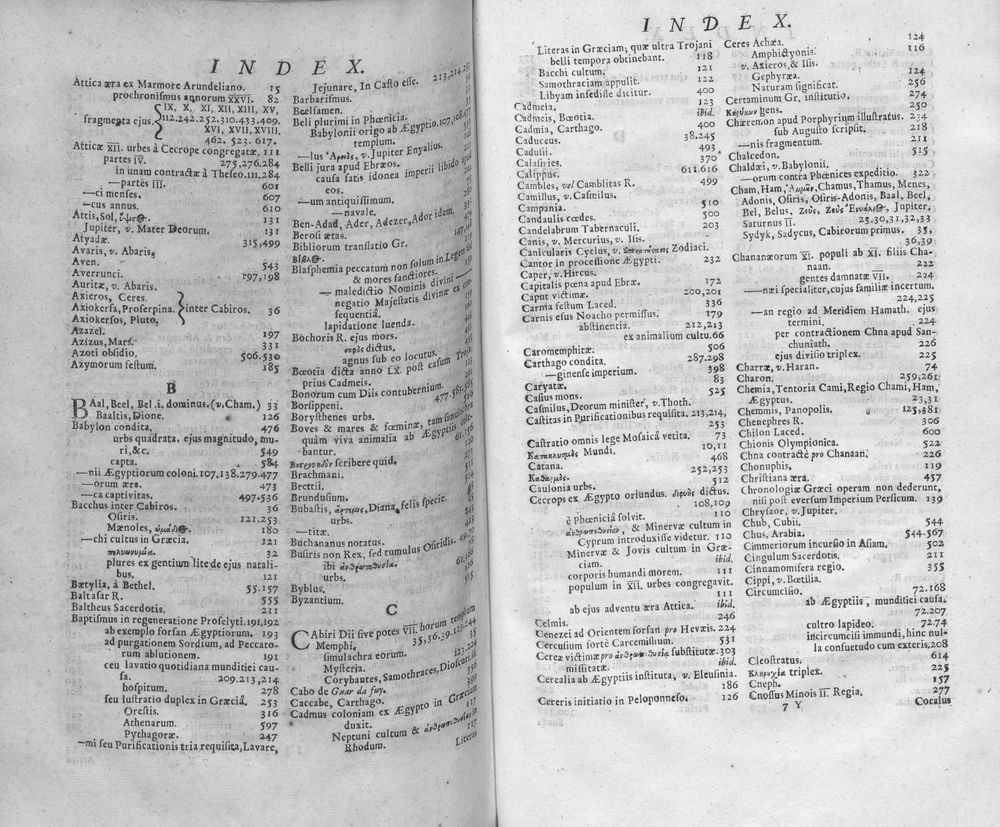 INDEX.
Attica æra ex Marmore Arundeliano. 15
prochronismus annorum XXVI. 82
IX, X, XI, XII, XIII, XV,
fragmenta ejus 112.242.252.310.433.409.
XVI, XVII, XVIII.
462. 523. 617.
Atticæ XII. urbes à Cecrope congregatæ. 111
partes IV. 275,276.284
in unam contractæ à Theseo. 111,284
—partes III. 601
—ci menses. 607
—cus annus. 610
Attis, Sol, 131
Jupiter, v. Mater Deorum. 131
Atyadæ. 315,499
Avaris, v. Abaris.
Aven. 543
Averrunci. 197,198
Auritæ, v. Abaris.
Axieros, Ceres.
Axiokersa, Proserpina. inter Cabiros. 36
Axiokersos, Pluto,
Azazel. 197
Azizus, Mars. 331
Azoti obsidio. 506.530
Azymorum festum. 185
B
BAal, Beel, Bel .i. dominus. (v. Cham.) 33
Baaltis, Dione. 126
Babylon condita. 476
urbs quadrata. ejus magnitudo, mu-
ri, &c. 549
capta. 584
—nii Ægyptiorum coloni. 107.138.279.477
—orum æra. 473
—ca captivitas. 497.536
Bacchus inter Cabiros. 36
Osiris. 121.253
Mænoles, 180
—chi cultus in Græcia. 121
πολυωνυμία. 32
plures ex gentium lite de ejus natali-
bus. 121
Bætylia, à Bethel. 55.157
Baltasar R. 555
Baltheus Sacerdotis. 211
Baptismus in regeneratione Proselyti. 191,192
ab exemplo forsan Ægyptiorum. 193
ad purgationem Sordium, ad Peccato-
rum ablutionem. 191
ceu lavatio quotidiana munditiei cau-
sa. 209.213,214
hospitum. 278
seu lustratio duplex in Græciâ, 253
Orestis. 316
Athenarum. 597
Pythagoræ. 247
—mi seu Purificationis tria requisita, Lavare,
Jejunare, In Casto esse. 213,214.253
Barbarismus.
Beelsamen.
Beli plurimi in Phœnicia.
Babylonii origo ab Ægyptio. 107,108.477
templum.
—lus Ἄρηος, v. Jupiter Enyalius.
Belli jura apud Ebræos.
causa satis idonea imperii libido apud
eos.
—um antiquissimum.
—navale.
Ben-Adad, Ader, Adezer, Ador idem.
Berosi ætas.
Bibliorum translatio Gr.
Blasphemia peccatum non solum in Legem
& mores sanctiores.
—maledictio Nominis divini—
negatio Majestatis divinæ ex con-
sequentiâ.
lapidatione luenda.
Bochoris R. ejus mors.
dictus.
agnus sub eo locutus.
Bœotia dicta anno LX. post casum Troja.
prius Cadmeis.
Bonorum cum Diis contubernium.
Borsippeni.
Borysthenes urbs.
Boves & mares & fœminæ, tam simulachra
quàm viva animalia ab Ægyptiis cole-
bantur.
scribere quid.
Brachmani.
Brettii.
Brundusium.
Bubastis, Diana, felis specie.
urbs.
—titæ.
Buchananus notatus.
Busiris non Rex, sed tumulus Osiridis.
ibi
urbs.
Byblus.
Byzantium.
C
CAbiri Dii sive potes VII. horum templum
Memphi. 35,36.39.123.244
simulachra eorum.
Mysteria.
Corybantes, Samothraces, Dioscuri.
Cabo de Guar da fuy.
Caccabe, Carthago.
Cadmus coloniam ex Ægypto in Græciam
duxit.
Neptuni cultum &
Rhodum. 117
Literas
INDEX.
Literas in Græciam; quæ ultra Trojani
belli tempora obtinebant. 118
Bacchi cultum. 121
Samothraciam appulit. 122
Libyam insedisse dicitur. 400
Cadmeia. 123
Cadmeis, Bœotia. ibid.
Cadmia, Carthago. 400
Caduceus. 38.245
Cadusii. 493
Calasiries. 370
Calippus. 611.616
Cambles, vel Camblitas R. 499
Camillus, v. Casmilus.
Campania. 510
Candaulis cædes. 500
Candelabrum Tabernaculi. 203
Canis, v. Mercurius, v. Isis.
Canicularis Cyclus, v. Zodiaci.
Cantor in processione Ægypti. 232
Caper, v. Hircus.
Capitolis pœna apud Ebræ. 172
Caput victimæ. 200,201
Carnia festum Laced. 336
Carnis esus Noacho permissus. 179
abstinentia. 212,213
ex animalium cultu. 66
Caromemphitæ. 506
Carthago condita. 287.298
—ginense imperium. 398
Caryatæ. 83
Casius mons. 525
Casmilus, Deorum minister, v. Thoth.
Castitas in Purificationibus requisita. 213,214,
253
Castratio omnis lege Mosaicâ vetita. 73
Mundi. 10,11
Catana. 468
252,253
Caulonia urbs 512
Cecrops ex Ægypto oriundus. διφυὴς dictus.
108,109
è Phœniciâ solvit. 110
& Minervæ cultum in
Cyprum introduxisse videtur. 110
Minervæ & Jovis cultum in Græ-
ciam. ibid.
corporis humandi morem. 111
populum in XII. urbes congregavit.
111
ab ejus adventu æra Attica. ibid.
Celmis. 246
Cenezei ad Orientem forsan pro Hevæis. 224
Cercusium forte Carcemisium. 531
Cerez victimæ pro substitutæ. 303
missitatæ. ibid.
Cerealia ab Ægyptiis instituta, v. Eleusinia.
186
Cereris initiatio in Peloponneso. 126
Ceres Achæa. 124
Amphictyonis. 116
v. Axieros, & Isis.
Gephyræa. 124
Naturam significat. 256
Certaminum Gr. institutio. 274
gens. 250
Chæremon apud Porphyrium illustratus. 234
sub Augusto scripsit. 218
—nis fragmentum. 211
Chalcedon. 515
Chaldæi, v. Babylonii.
—orum contra Phœnices expeditio. 322
Cham, Ham, Ἄμμων, Chamus, Thamus, Menes,
Adonis, Osiris, Osiris-Adonis, Baal, Beel,
Bel, Belus, Ζεὺς, Jupiter,
Saturnus II. 23,30,31,32,33
Sydyk, Sadycus, Cabirorum primus. 35,
36,39
Chananæorum XI. populi ab XI. filiis Cha-
naan. 222
gentes damnatæ VII. 224
—næi specialiter, cujus familiæ incertum.
224,225
—an regio ad Meridiem Hamath. ejus
termini. 224
per contractionem Chna apud San-
chuniath. 226
ejus divisio triplex. 225
Charræ, v. Haran. 74
Charon. 259,261
Chemia, Tentoria Cami, Regio Chami, Ham,
Ægyptus. 23,31
Chemmis, Panopolis. 125,381
Chenephres R. 306
Chilon Laced. 600
Chionis Olympionica. 522
Chna contractè pro Chanaan. 226
Chonuphis. 119
Christiana æra. 457
Chronologiæ Græci operam non dederunt,
nisi post eversum Imperium Persicum. 139
Chrysaor, v. Jupiter.
Chub, Cubii. 544
Chus, Arabia. 544.567
Cimmeriorum incursio in Asiam. 502
Cingulum Sacerdotis. 211
Cinnamomifera regio. 355
Cippi, v. Bœtilia.
Circumcisio. 72.168
ab Ægyptiis, munditiei causa.
72.207
cultro lapideo. 72.74
incircumcisi immundi, hinc nul-
la consuetudo cum exteris, 208
Cleostratus. 614
triplex. 225
Cneph. 157
Cnossus Minois II. Regia. 277
7 Y Cocalus